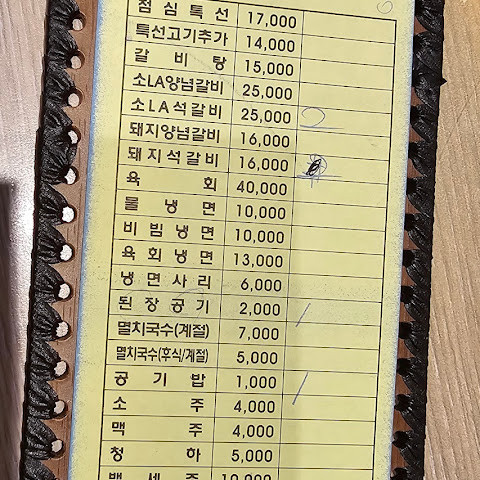 점심특선 17,000
특선고기추가 14,000
갈비탕 15,000
소LA양념갈비 25,000
소LA석갈비 25,000
돼지양념갈비 16,000
돼지석갈비 16,000
육회 40,000
물냉면 10,000
비빔냉면 10,000
육회냉면 13,000
냉면사리 6,000
된장공기 2,000
멸치국수(계절) 7,000
멸치국수(후식/계절) 5,000
공기밥 1,000
소주 4,000
맥주 4,000
청하 5,000
백세주 10,000